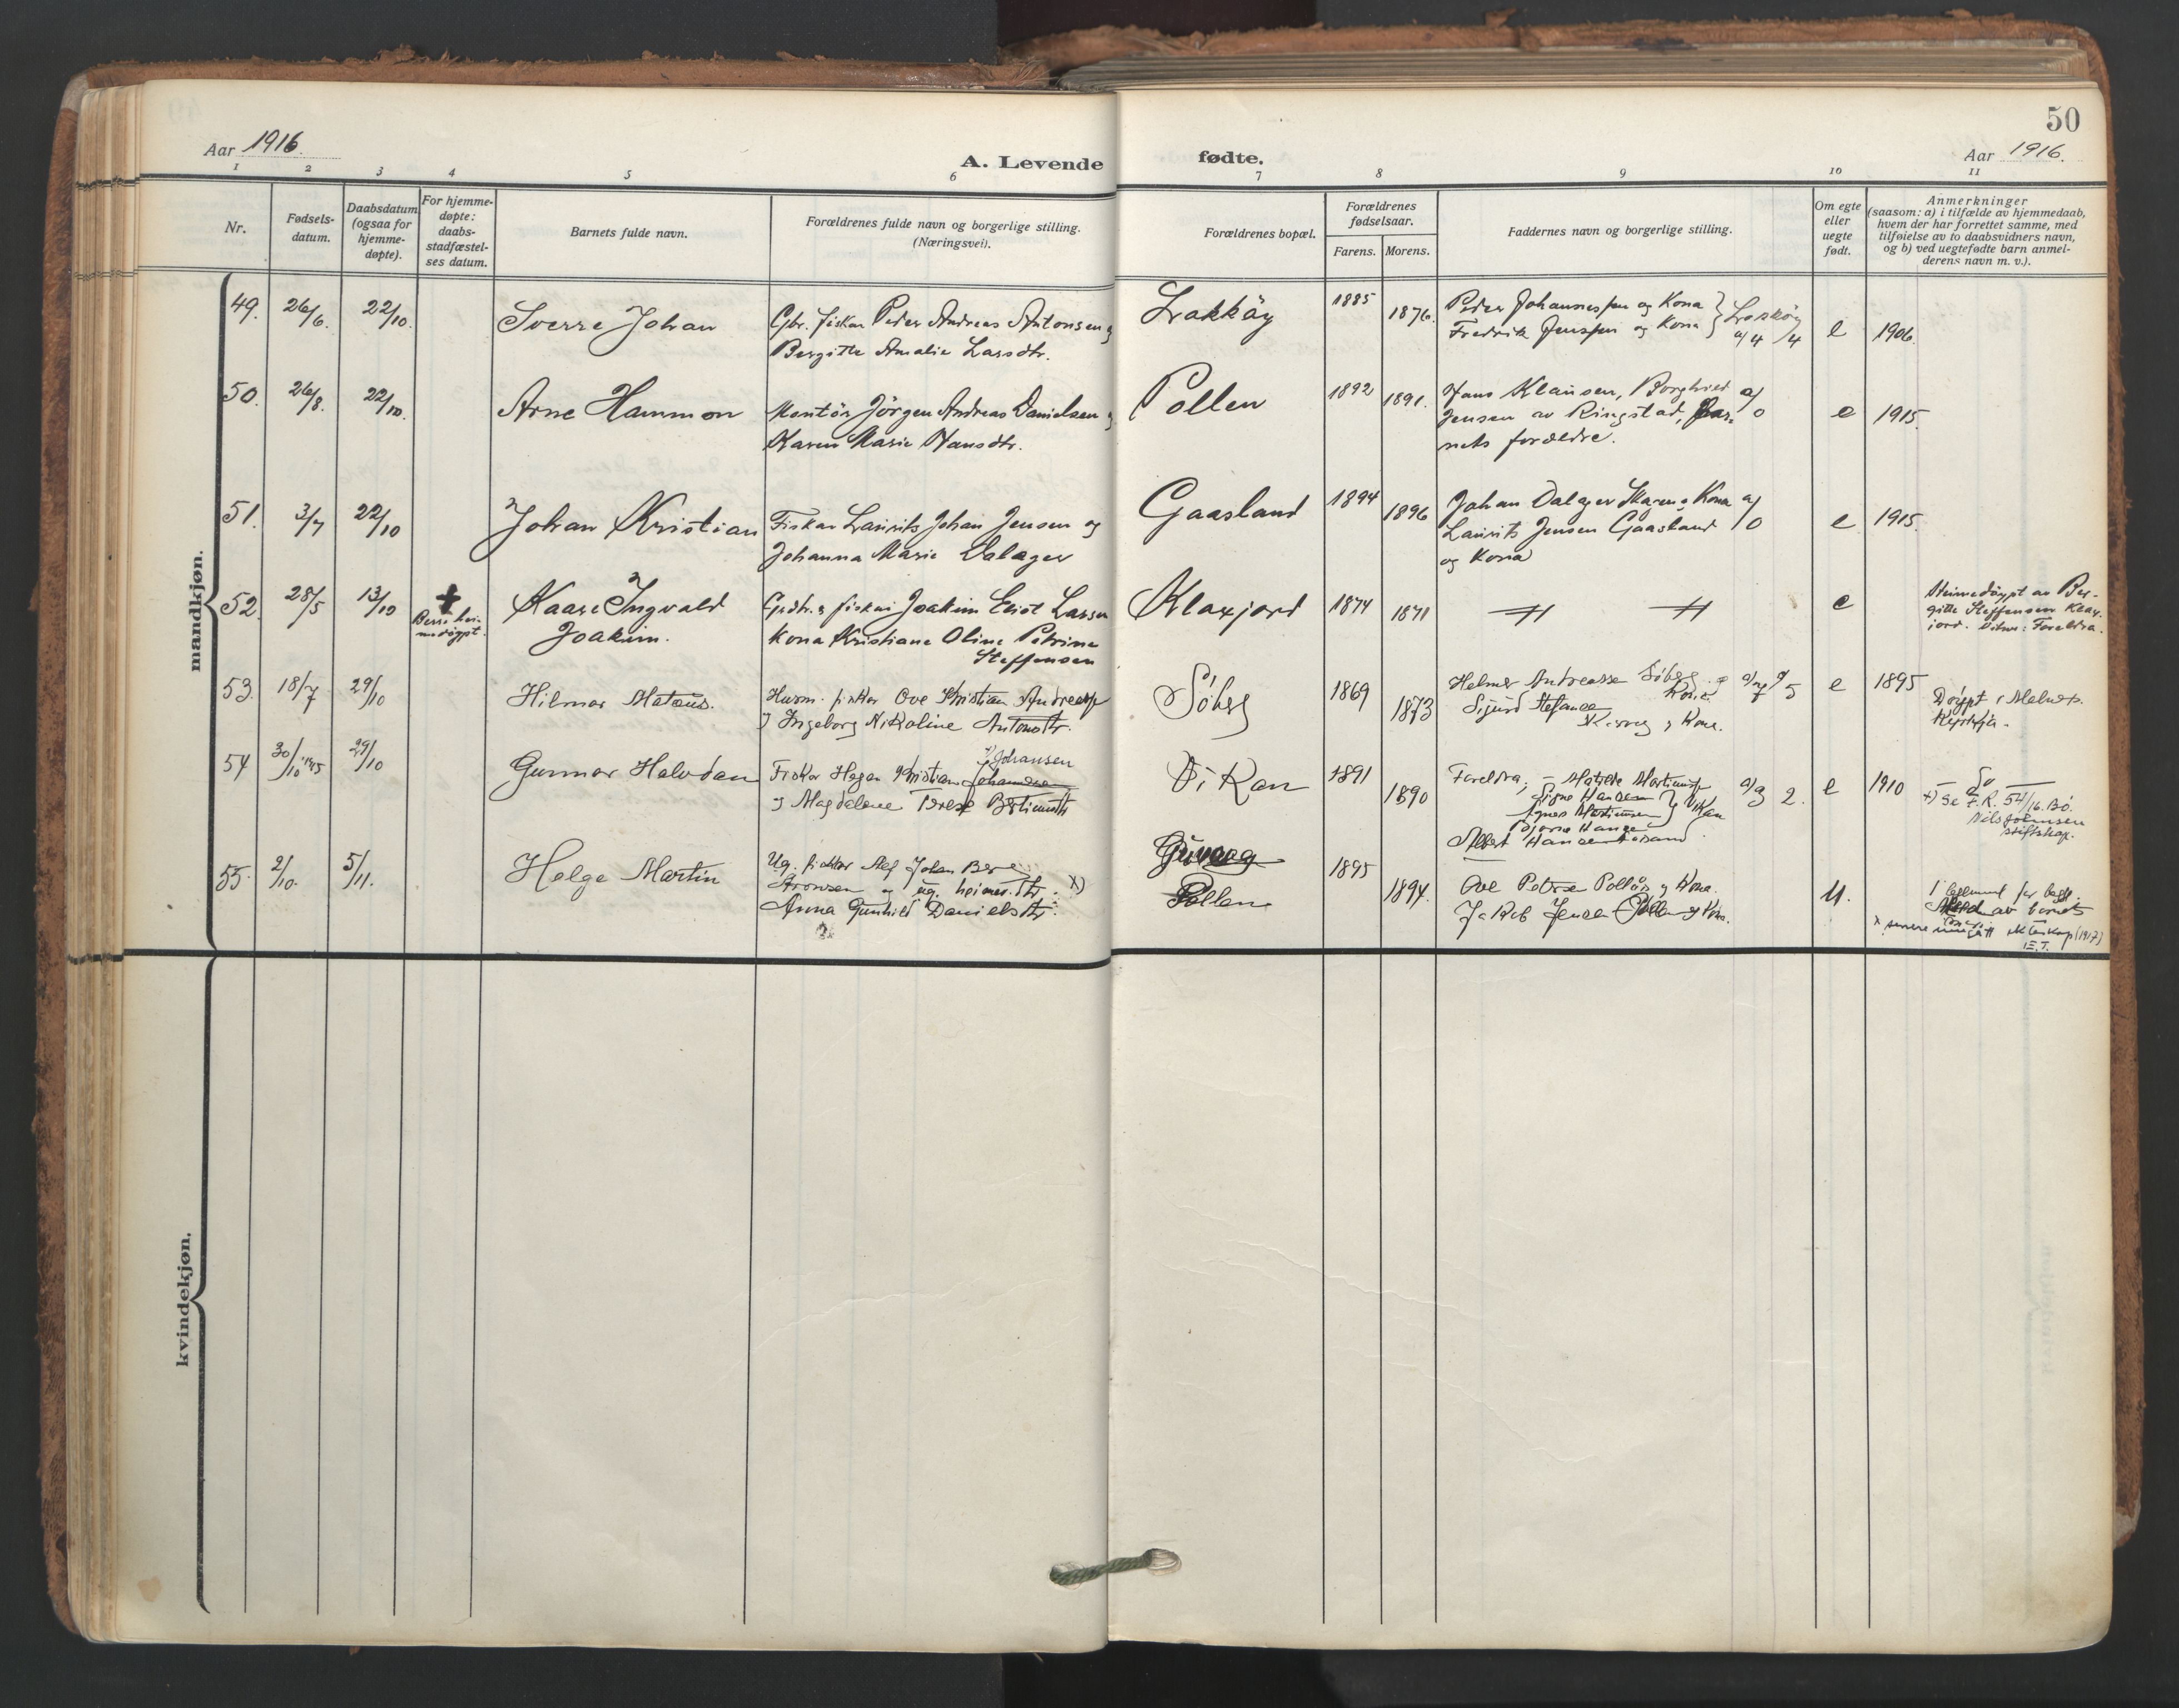 50
Aar 1916.
A. Levende fødte.
Aar 1916.
1 2 3 4 5 6 7 8 9 10 11
Nr.
Fødsels-
datum.
Daabsdatum
(ogsaa for
hjemme-
døpte).
For hjemme-
døpte:
daabs-
stadfæstel-
ses datum.
Barnets fulde navn.
Forældrenes fulde navn og borgerlige stilling.
(Næringsvei).
Forældrenes bopæl.
Forældrenes
fødselsaar.
Farens. Morens.
Faddernes navn og borgerlige stilling.
Om egte
eller
uegte
født.
Anmerkninger
(saasom: a) i tilfælde av hjemmedaab,
hvem der har forrettet samme, med
tilføielse av to daabsvidners navn,
og b) ved uegtefødte barn anmel-
derens navn m. v.).
mandkjøn.
49. 26/6. 22/10. Sverre Johan
Gbr. fisker Peder Andreas Antonsen og
Bergitte Amalie Larsdtr.
1885 1876.
Peder Johannessen og Kona
Fredrik Jenssen og Kona
a/4 /4 e 1906.
50. 26/8. 22/10. Arne Hammon
Montör Jörgen Andreas Danielsen og
Karen Marie Hansdtr.
Pollen 1892 1891.
Hans Klausen, Borghild a/
Jensen av Ringstad, Bar- 0
nets forældre.
e 1915.
51. 3/7 22/10 Johan Kristian
Fisker Laurits Johan Jensen og
Johanna Marie Dalager
Gaasland 1894 1896
Johan Dalager Skagen og Kona a/
Laurits Jensen Gaasland /0
og Kona
e 1915.
52. 28/5 13/10 +
Berre hei-
medöypt.
Kaare Ingvald
Joakim.
Grdbr. og fisker Joakim Eliot Larsen
kona Kristiane Oline Petrine
Steffensen
Klaxjord 1874 1871
e
Heimedöypt av Ber-
gitte Steffensen Klax-
jord. Vitne: Foreldra.
53. 18/7 29/10 Hilmar Mateus.
Husm. fisker Ove Kristian Andreass.
og Ingeborg Nikoline Antonsdtr.
Söberg 1869 1873
Helmer Andreassen Söberg og
Kona
Sigurd Stefansen
og Kona.
a/7 /5 e 1895
Döypt i Melnes
Kyrkja.
54 30/10 1915 29/10 Gunnar Halvdan
x) Johansen
Fisker Hagen Kristian Johannesen
og Magdalene Terese
Vikan 1891 1890
Foreldra, Matilde Martinussen
Signe Hansen
Agnes Martinussen Vikan
Bjarne Hansen
Albert Hansen
a/3 2. e 1910
— Do —
x) Se F.R. 54/16. Bö.
Nils Johnsen
stiftskap.
55. 2/10. 5/11. Helge Martin
Ug. fisker Alf Johan Berg
Aronsen og ug. heimev. dtr. x)
Anna Gunhild Danielsdtr.
Guvaag
Pollen
1895 1894.
Ove Petersen Pollen og Kona.
Jakob Jensen Pollen og Kona.
u.
av barnets
x senere inngått ekteskap (1917)
E.T.
kvindekjøn.